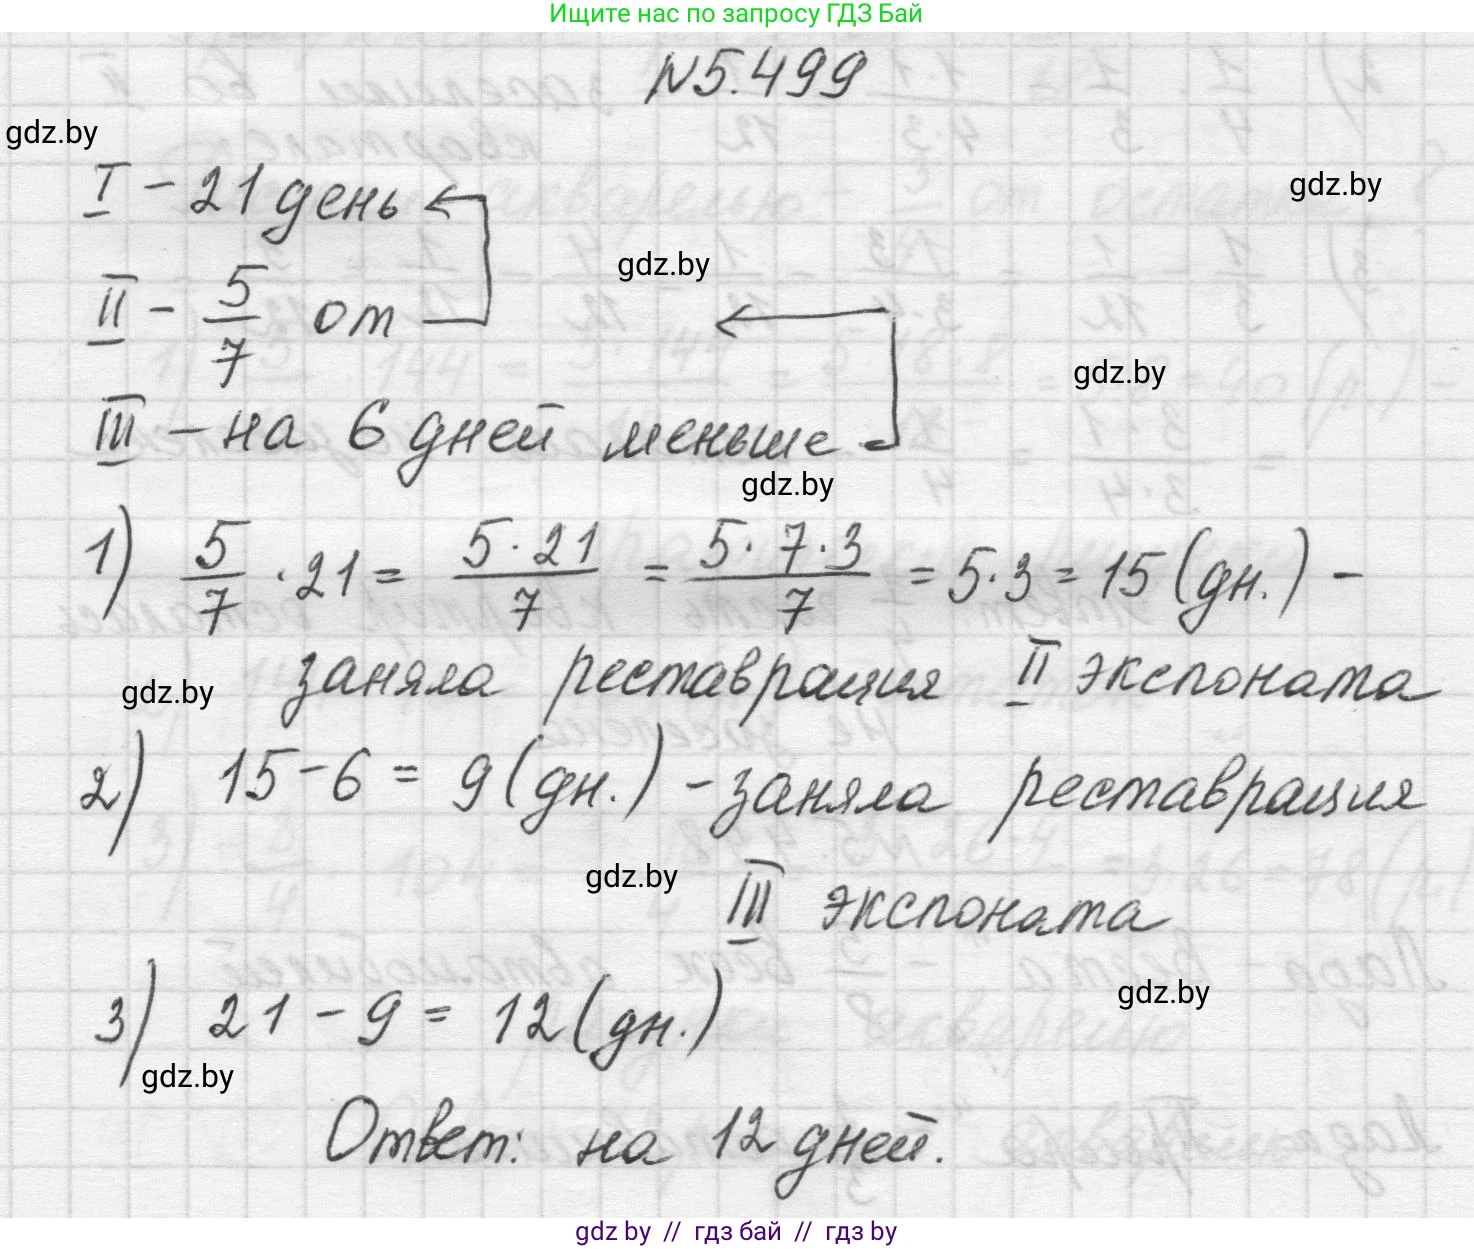 Ищите нас по запросу ГДЗ Бай
N5.499
gdz.by
I - 21 день
gdz.by
gdz.by
II - 5/7 от
gdz.by
III - на 6 дней меньше
gdz.by
1) 5/7 · 21 = 5 · 21/7 = 5 · 7 · 3/7 = 5 · 3 = 15 (дн.) -
gdz.by
заняла реставрация II экспоната
2) 15 - 6 = 9 (дн.) - заняла реставрация
gdz.by
III экспоната
gdz.by
3) 21 - 9 = 12 (дн.)
gdz.by
Ответ: на 12 дней.
gdz by // гдз бай // гдз by